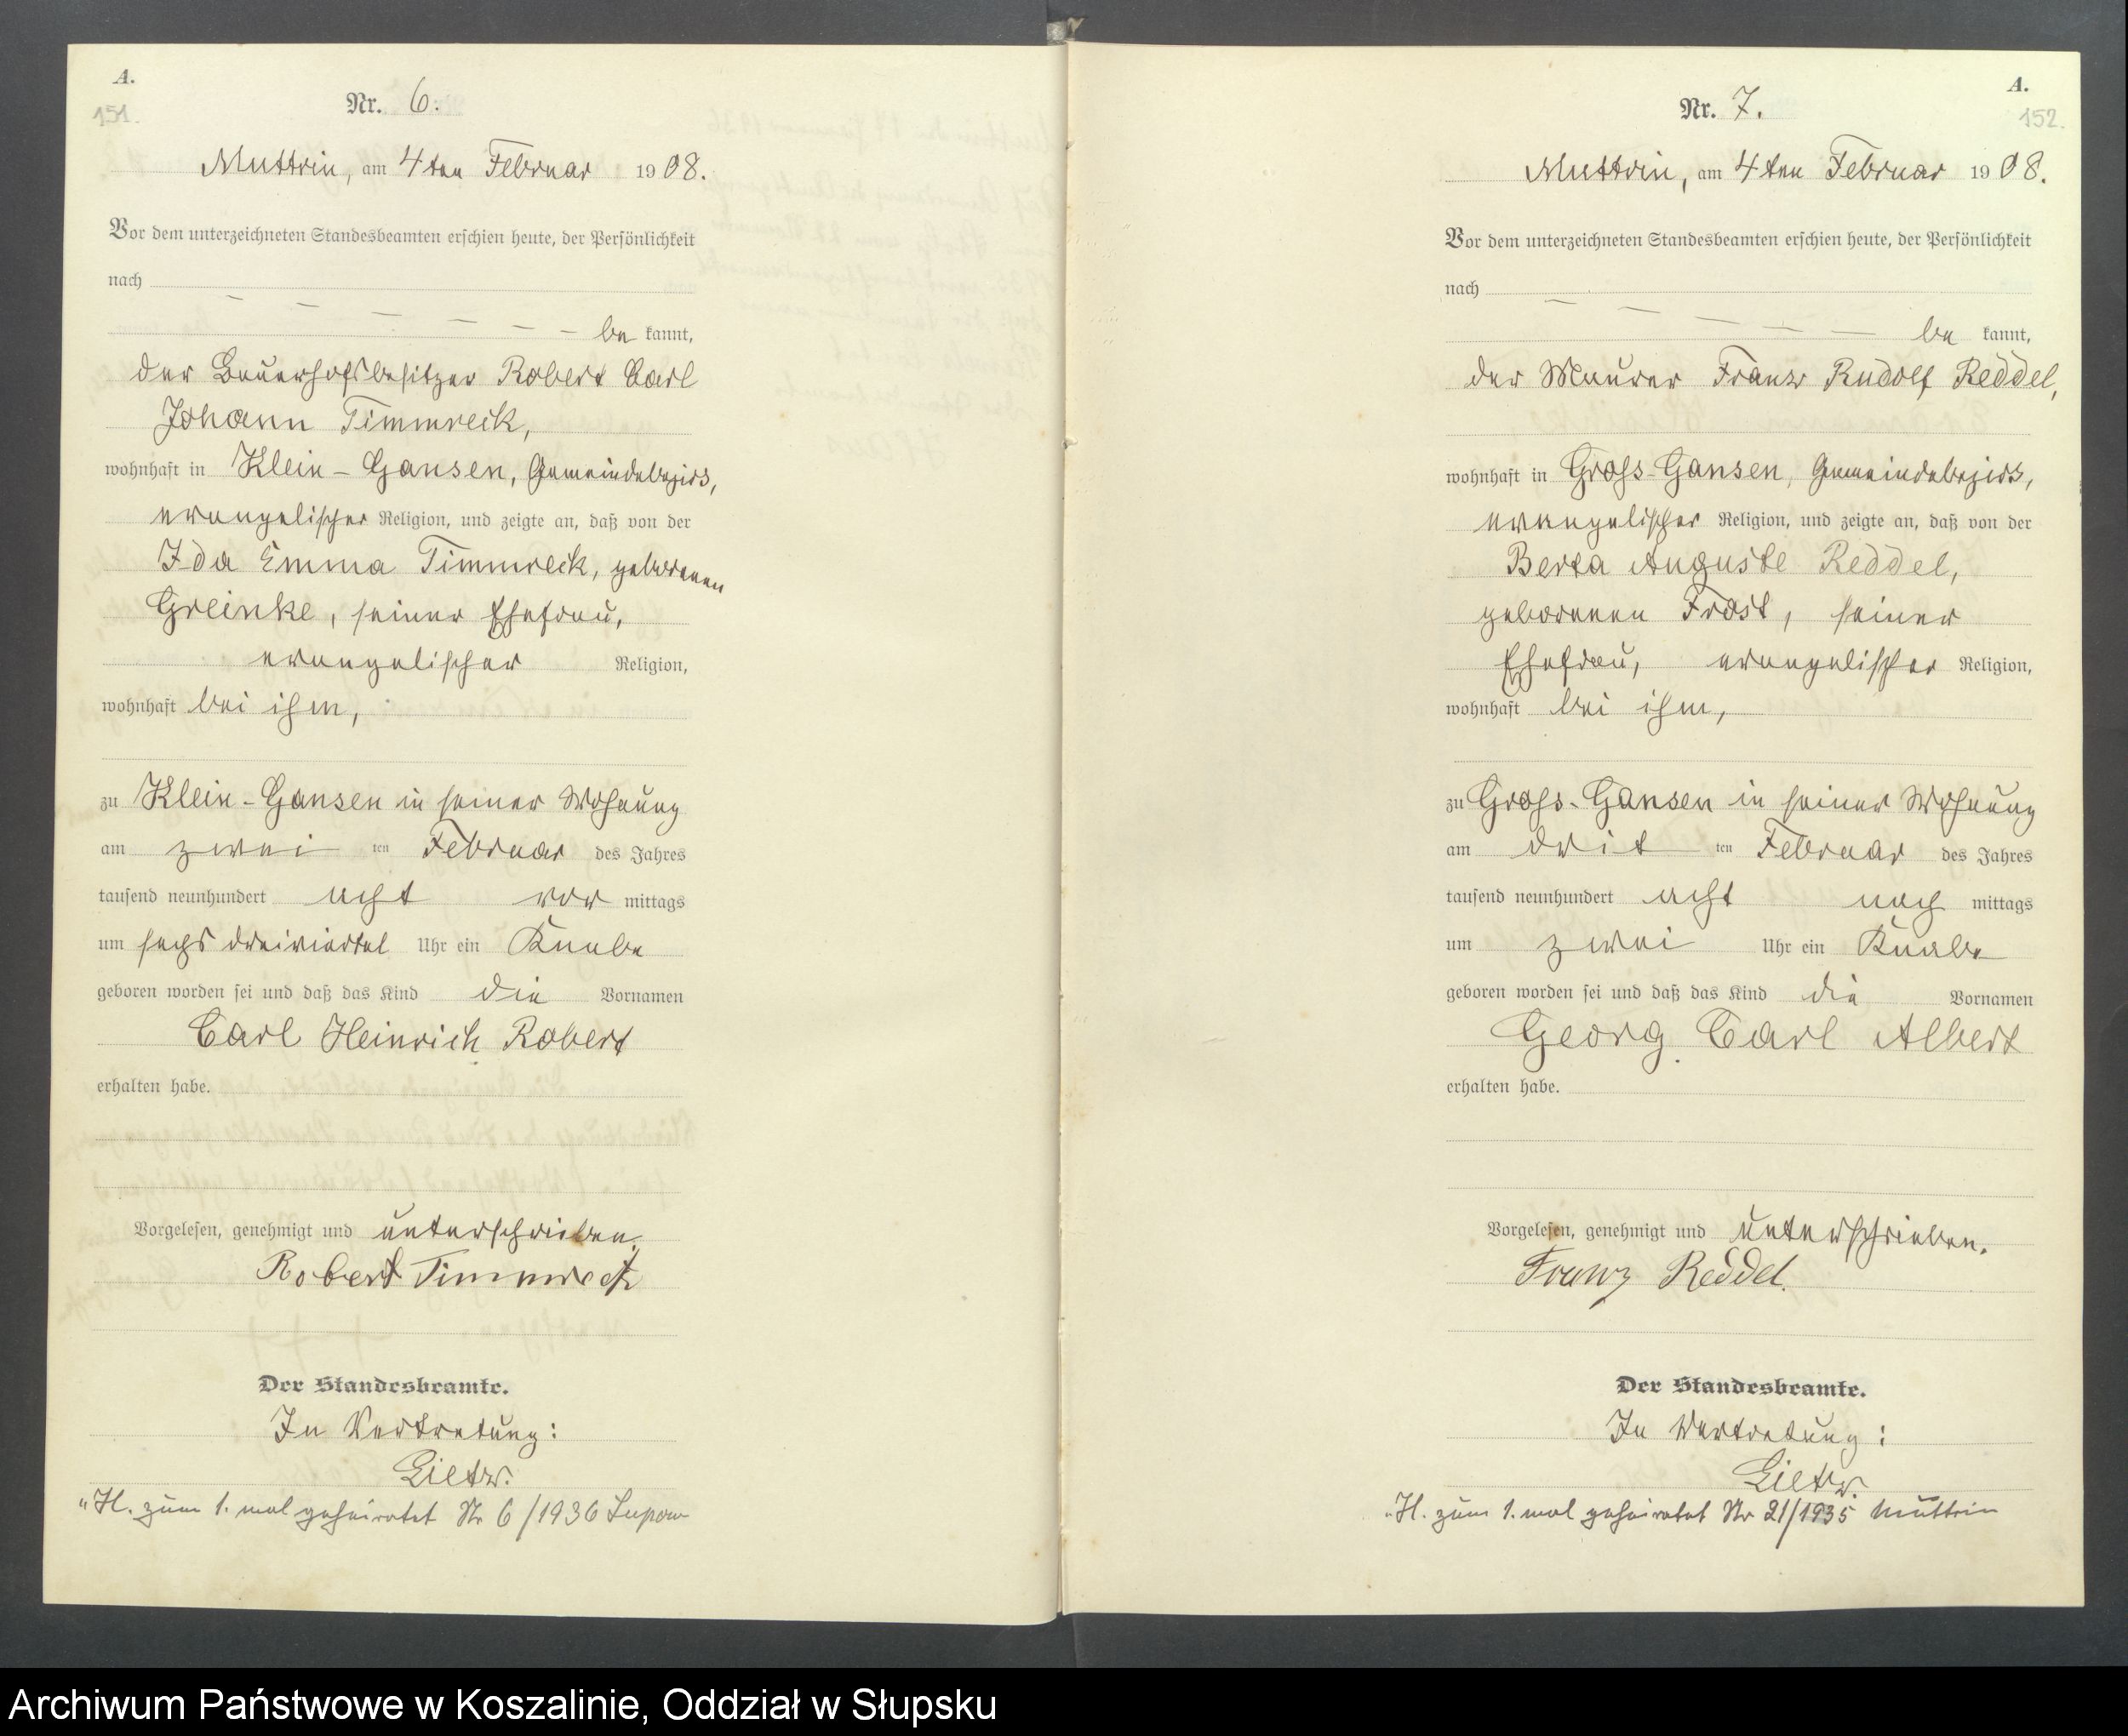 A.
151.
Nr. 6.
Muttrin, am 4ten Februar 1908.
Vor dem unterzeichneten Standesbeamten erschien heute, der Persönlichkeit
nach
be kannt,
der Bauerhofsbesitzer Robert Carl
Johann Timmreck,
wohnhaft in Klein-Gansen, Gemeindebezirk,
evangelischer Religion, und zeigte an, daß von der
Ida Emma Timmreck, geborenen
Greinke, seiner Ehefrau,
evangelischer Religion,
wohnhaft bei ihm,
zu Klein-Gansen in seiner Wohnung
am zwei ten Februar des Jahres
tausend neunhundert acht vor mittags
um sechs dreiviertel Uhr ein Knabe
geboren worden sei und daß das Kind die Vornamen
Carl Heinrich Robert
erhalten habe.
Vorgelesen, genehmigt und unterschrieben.
Robert Timmreck
Der Standesbeamte.
In Vertretung:
Lietz.
"H. zum 1. mal geheiratet Nr 6/1936 Lupow
A.
152.
Nr. 7.
Muttrin, am 4ten Februar 1908.
Vor dem unterzeichneten Standesbeamten erschien heute, der Persönlichkeit
nach
be kannt,
der Maurer Franz Rudolf Reddel,
wohnhaft in Gross-Gansen, Gemeindebezirk,
evangelischer Religion, und zeigte an, daß von der
Berta Auguste Reddel,
geborenen Frost, seiner
Ehefrau, evangelischer Religion,
wohnhaft bei ihm,
zu Gross-Gansen in seiner Wohnung
am drit ten Februar des Jahres
tausend neunhundert acht nach mittags
um zwei Uhr ein Knabe
geboren worden sei und daß das Kind die Vornamen
Georg Carl Albert
erhalten habe.
Vorgelesen, genehmigt und unterschrieben.
Franz Reddel.
Der Standesbeamte.
In Vertretung:
Lietz.
"H. zum 1. mal geheiratet Nr 21/1935 Muttrin
Archiwum Państwowe w Koszalinie, Oddział w Słupsku